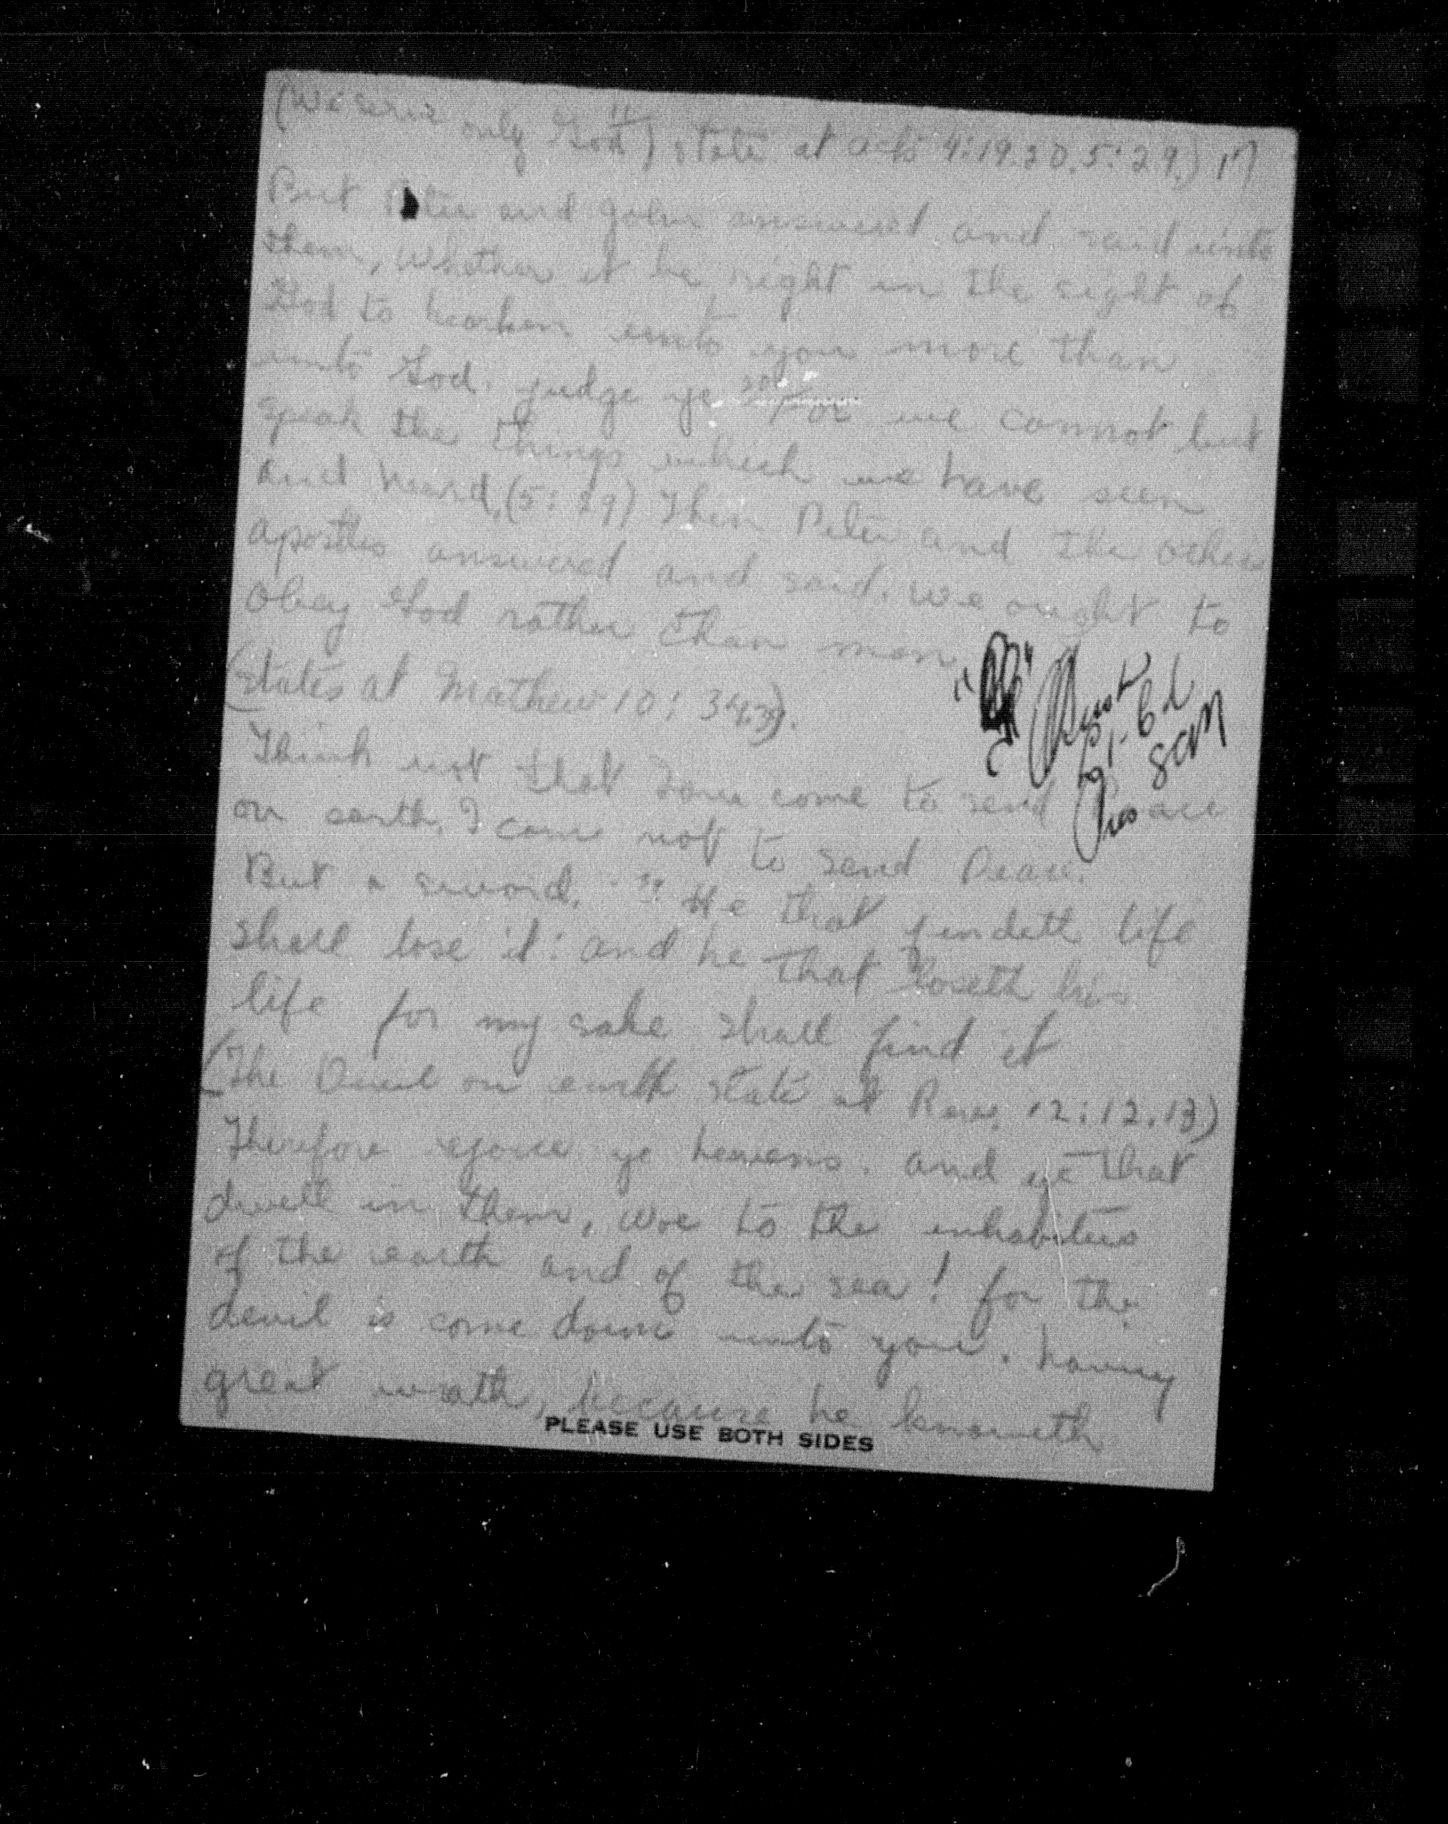 (We serve only God) state at acts 4:19.20.5:29.)
But Peter and John answered and said unto
them, Whether it be right in the sight of
God to hearken unto you more than
unto God. judge ye 20/For we cannot but
speak the things which we have seen
and heard, (5:29) Then Peter and the other
apostles answered and said. We ought to
Obey God rather than men.
(states at Mathew 10:34.39).
Think not that I am come to send Peace
on earth, I came not to send Peace.
But a sword. 39 He that findeth life
shall lose it: and he that loseth his
life for my sake shall find it
(The Devil on earth state at Reve. 12:12.13)
Therefore rejoice ye heavens. and ye that
dwell in them, woe to the inhabiters
of the earth and of the sea! for the
devil is come down unto you. having
great wrath, because he knoweth
PLEASE USE BOTH SIDES